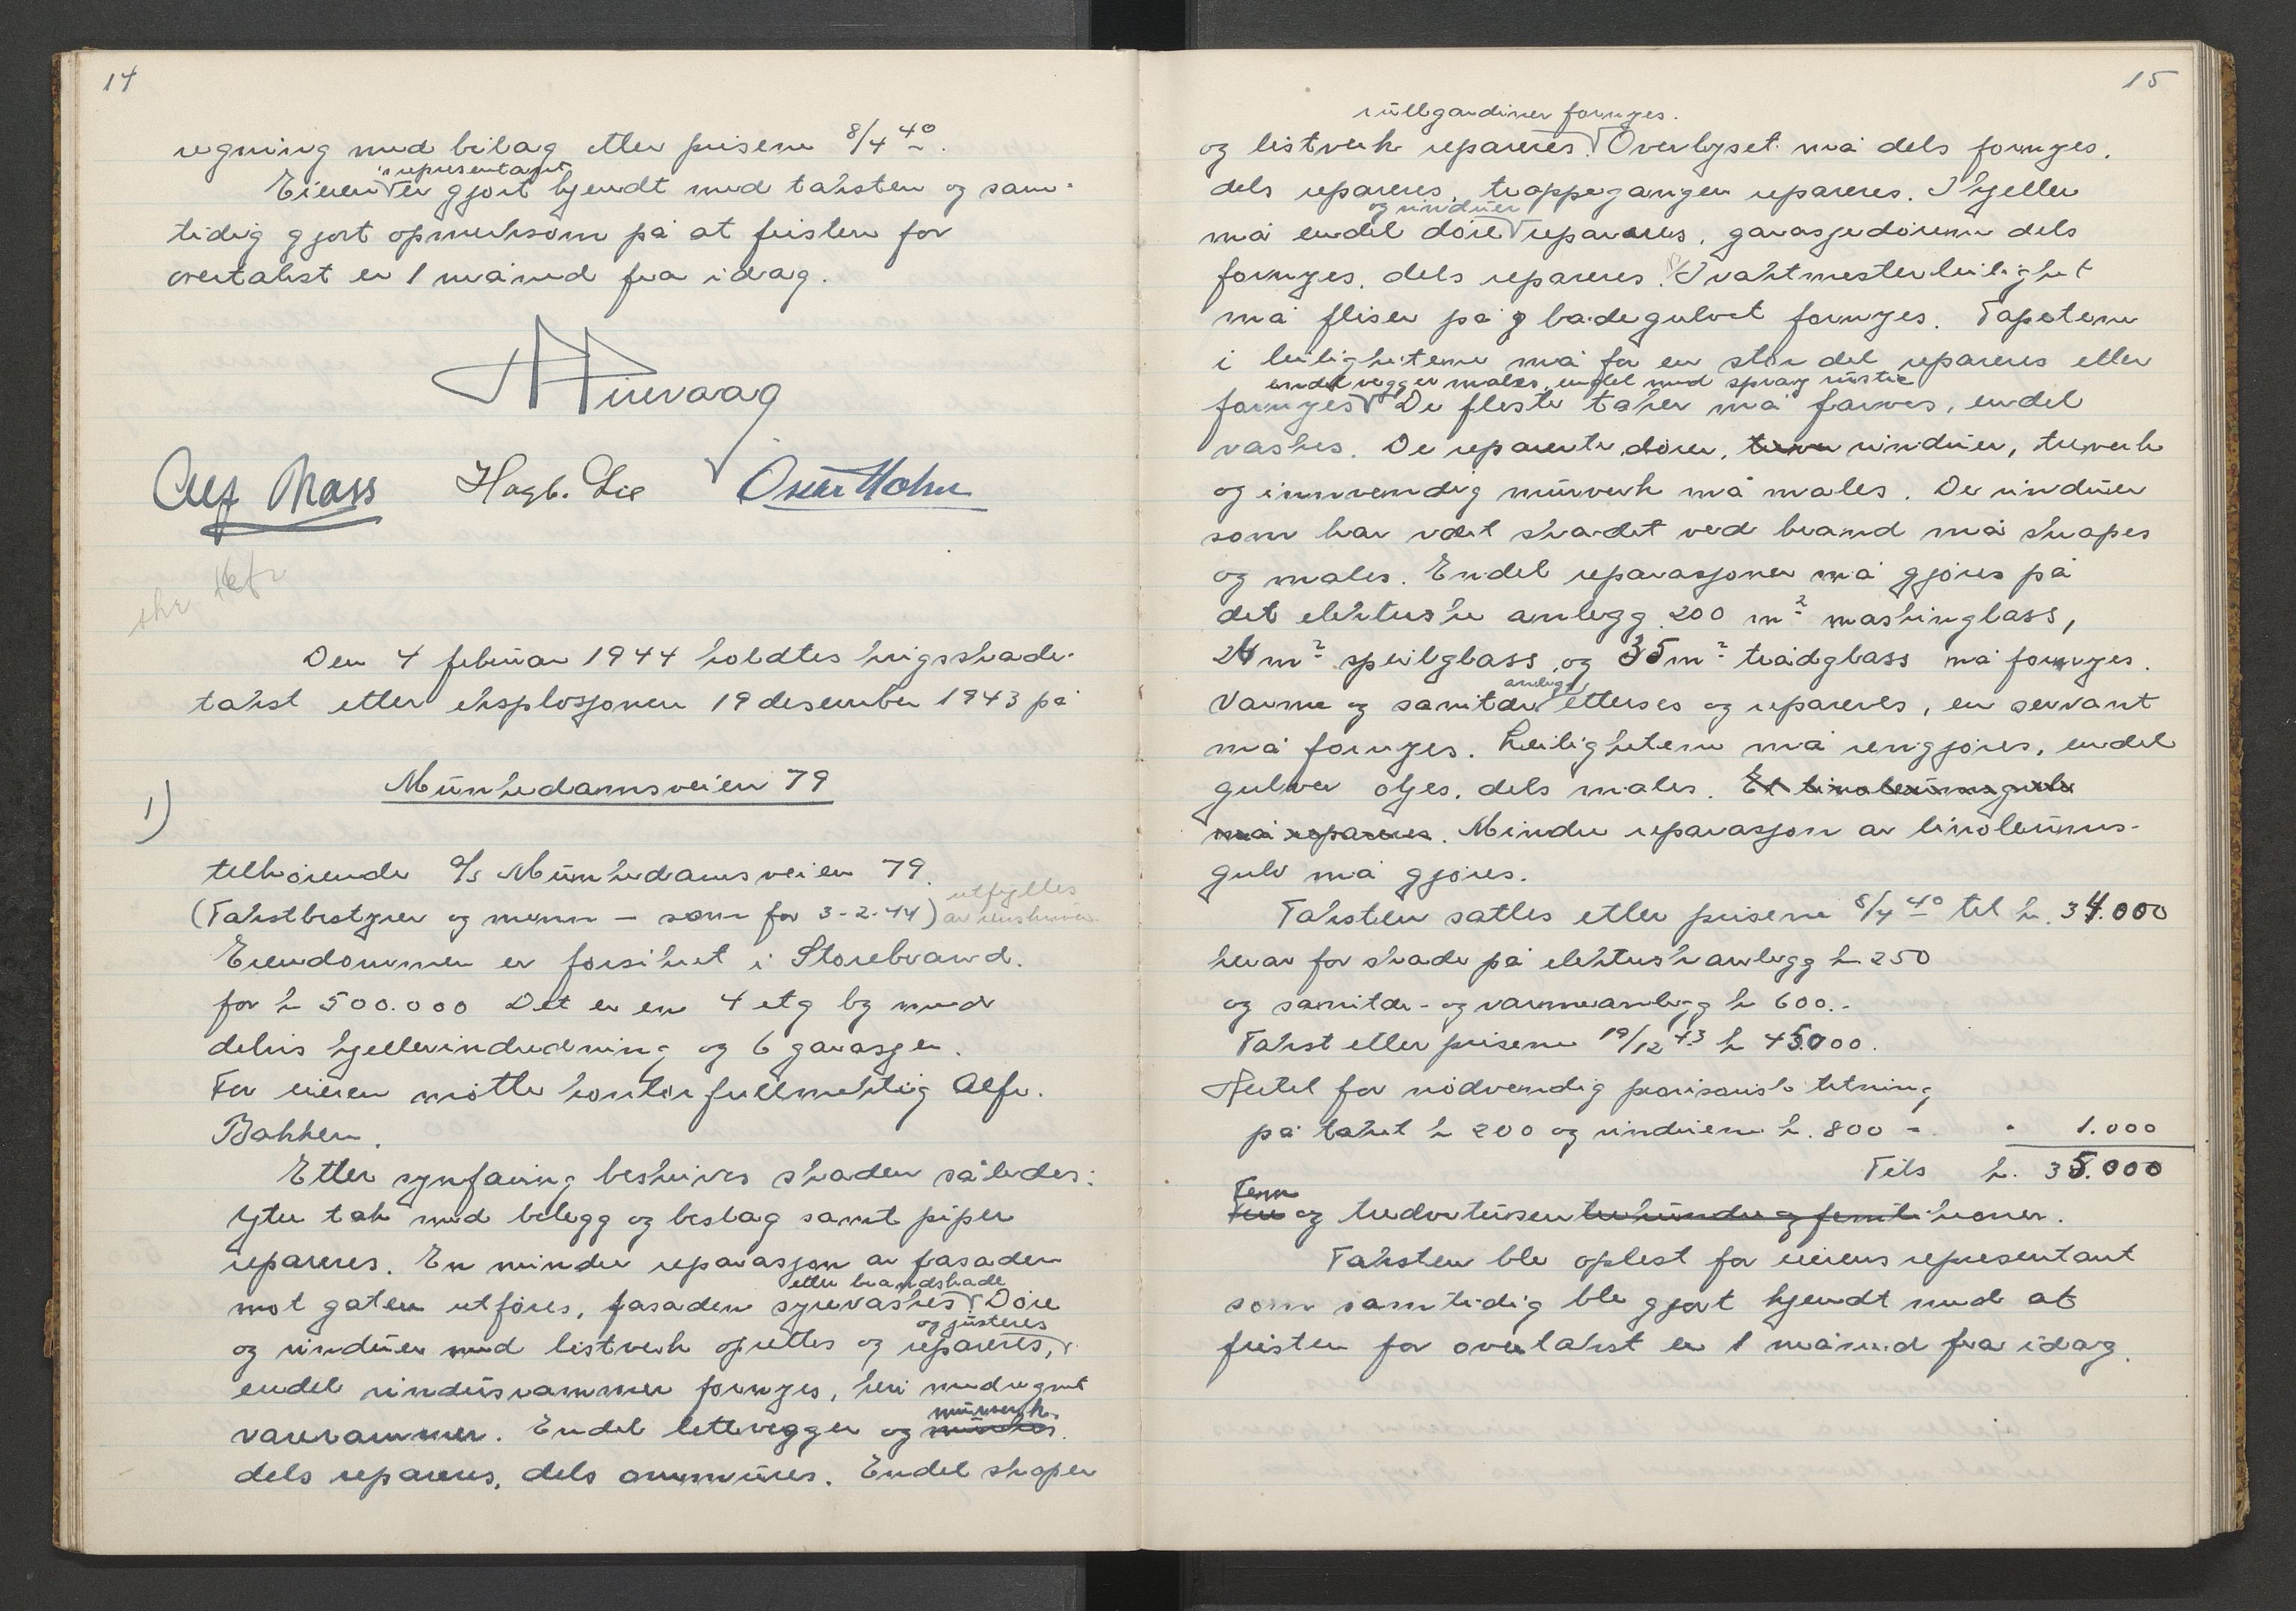 14
regning med bilag etter prisene 8/4 40.
s representant
Eieren er gjort kjendt med taksten og sam-
tidig gjort opmerksom på at fristen for
overtakst er 1 måned fra idag.
Alf Hagb. Lie
skr
Den 4 februar 1944 holdtes krigsskade-
takst etter eksplosjonen 19 desember 1943 på
1)
Munkedamsveien 79
tilhørende A/S Munkedamsveien 79.
utfylles
(Takstbestyrer og menn - som for 3-2-44) av renskriver
Eiendommen er forsikret i Storebrand.
for k 500.000 Det er en 4 etg by med
delvis kjellerindredning og 6 garasjer.
For eieren møtte kontorfullmektig Alfr.
Bakken.
Etter synfaring beskrives skaden således:
Ytre tak med belegg og beslag samt piper
repareres. En mindre reparasjon av fasaden
etter brandskade
mot gaten utføres, fasaden syrevaskes. Døre
og justeres
og vinduer med listverk oprettes og repareres,
endel vindusrammer fornyes, heri medregnet
murverk
varerammer. Endel lettvegger og
dels repareres, dels ommures. Endel skaper
15
rullgardiner fornyes.
og listverk repareres. Overlyset må dels fornyes,
dels repareres, trappegangen repareres. I kjeller
og vinduer
må endel døre repareres, garasjedørene dels
fornyes, dels repareres. I vaktmesterleilighet
må fliser på badegulvet fornyes. Tapetene
i leilighetene må for en stor del repareres eller
endel vegger males, endel med spray rustic
fornyes. De fleste taker må farves, endel
vaskes. De reparerte dører, vinduer, treverk
og innvendig murverk må males. De vinduer
som har vært skadet ved brand må skrapes
og males. Endel reparasjoner må gjøres på
det elektriske anlegg. 200 m² maskinglass,
24 m² speilglass, og 35 m² trådglass må fornyes.
anlegg
Varme og sanitær etterses og repareres, en servant
må fornyes. Leilighetene må rengjøres, endel
gulver oljes, dels males. Et linoleumsgulv
må repareres. Mindre reparasjon av linoleums-
gulv må gjøres.
Taksten sattes etter prisene 8/4 40 til k. 34.000
herav for skade på elektrisk anlegg k 250
og sanitær- og varmeanlegg k 600.-
Takst etter prisene 19/12 43 k 45.000.
Hertil for nødvendig provisorisk tetning
på taket k 200 og vinduene k. 800 - " 1.000
Tils k. 35.000
Fem
Fire og tredvetusen trehundre og femti kroner.
Taksten ble oplest for eierens representant
som samtidig ble gjort kjendt med at
fristen for overtakst er 1 måned fra idag.